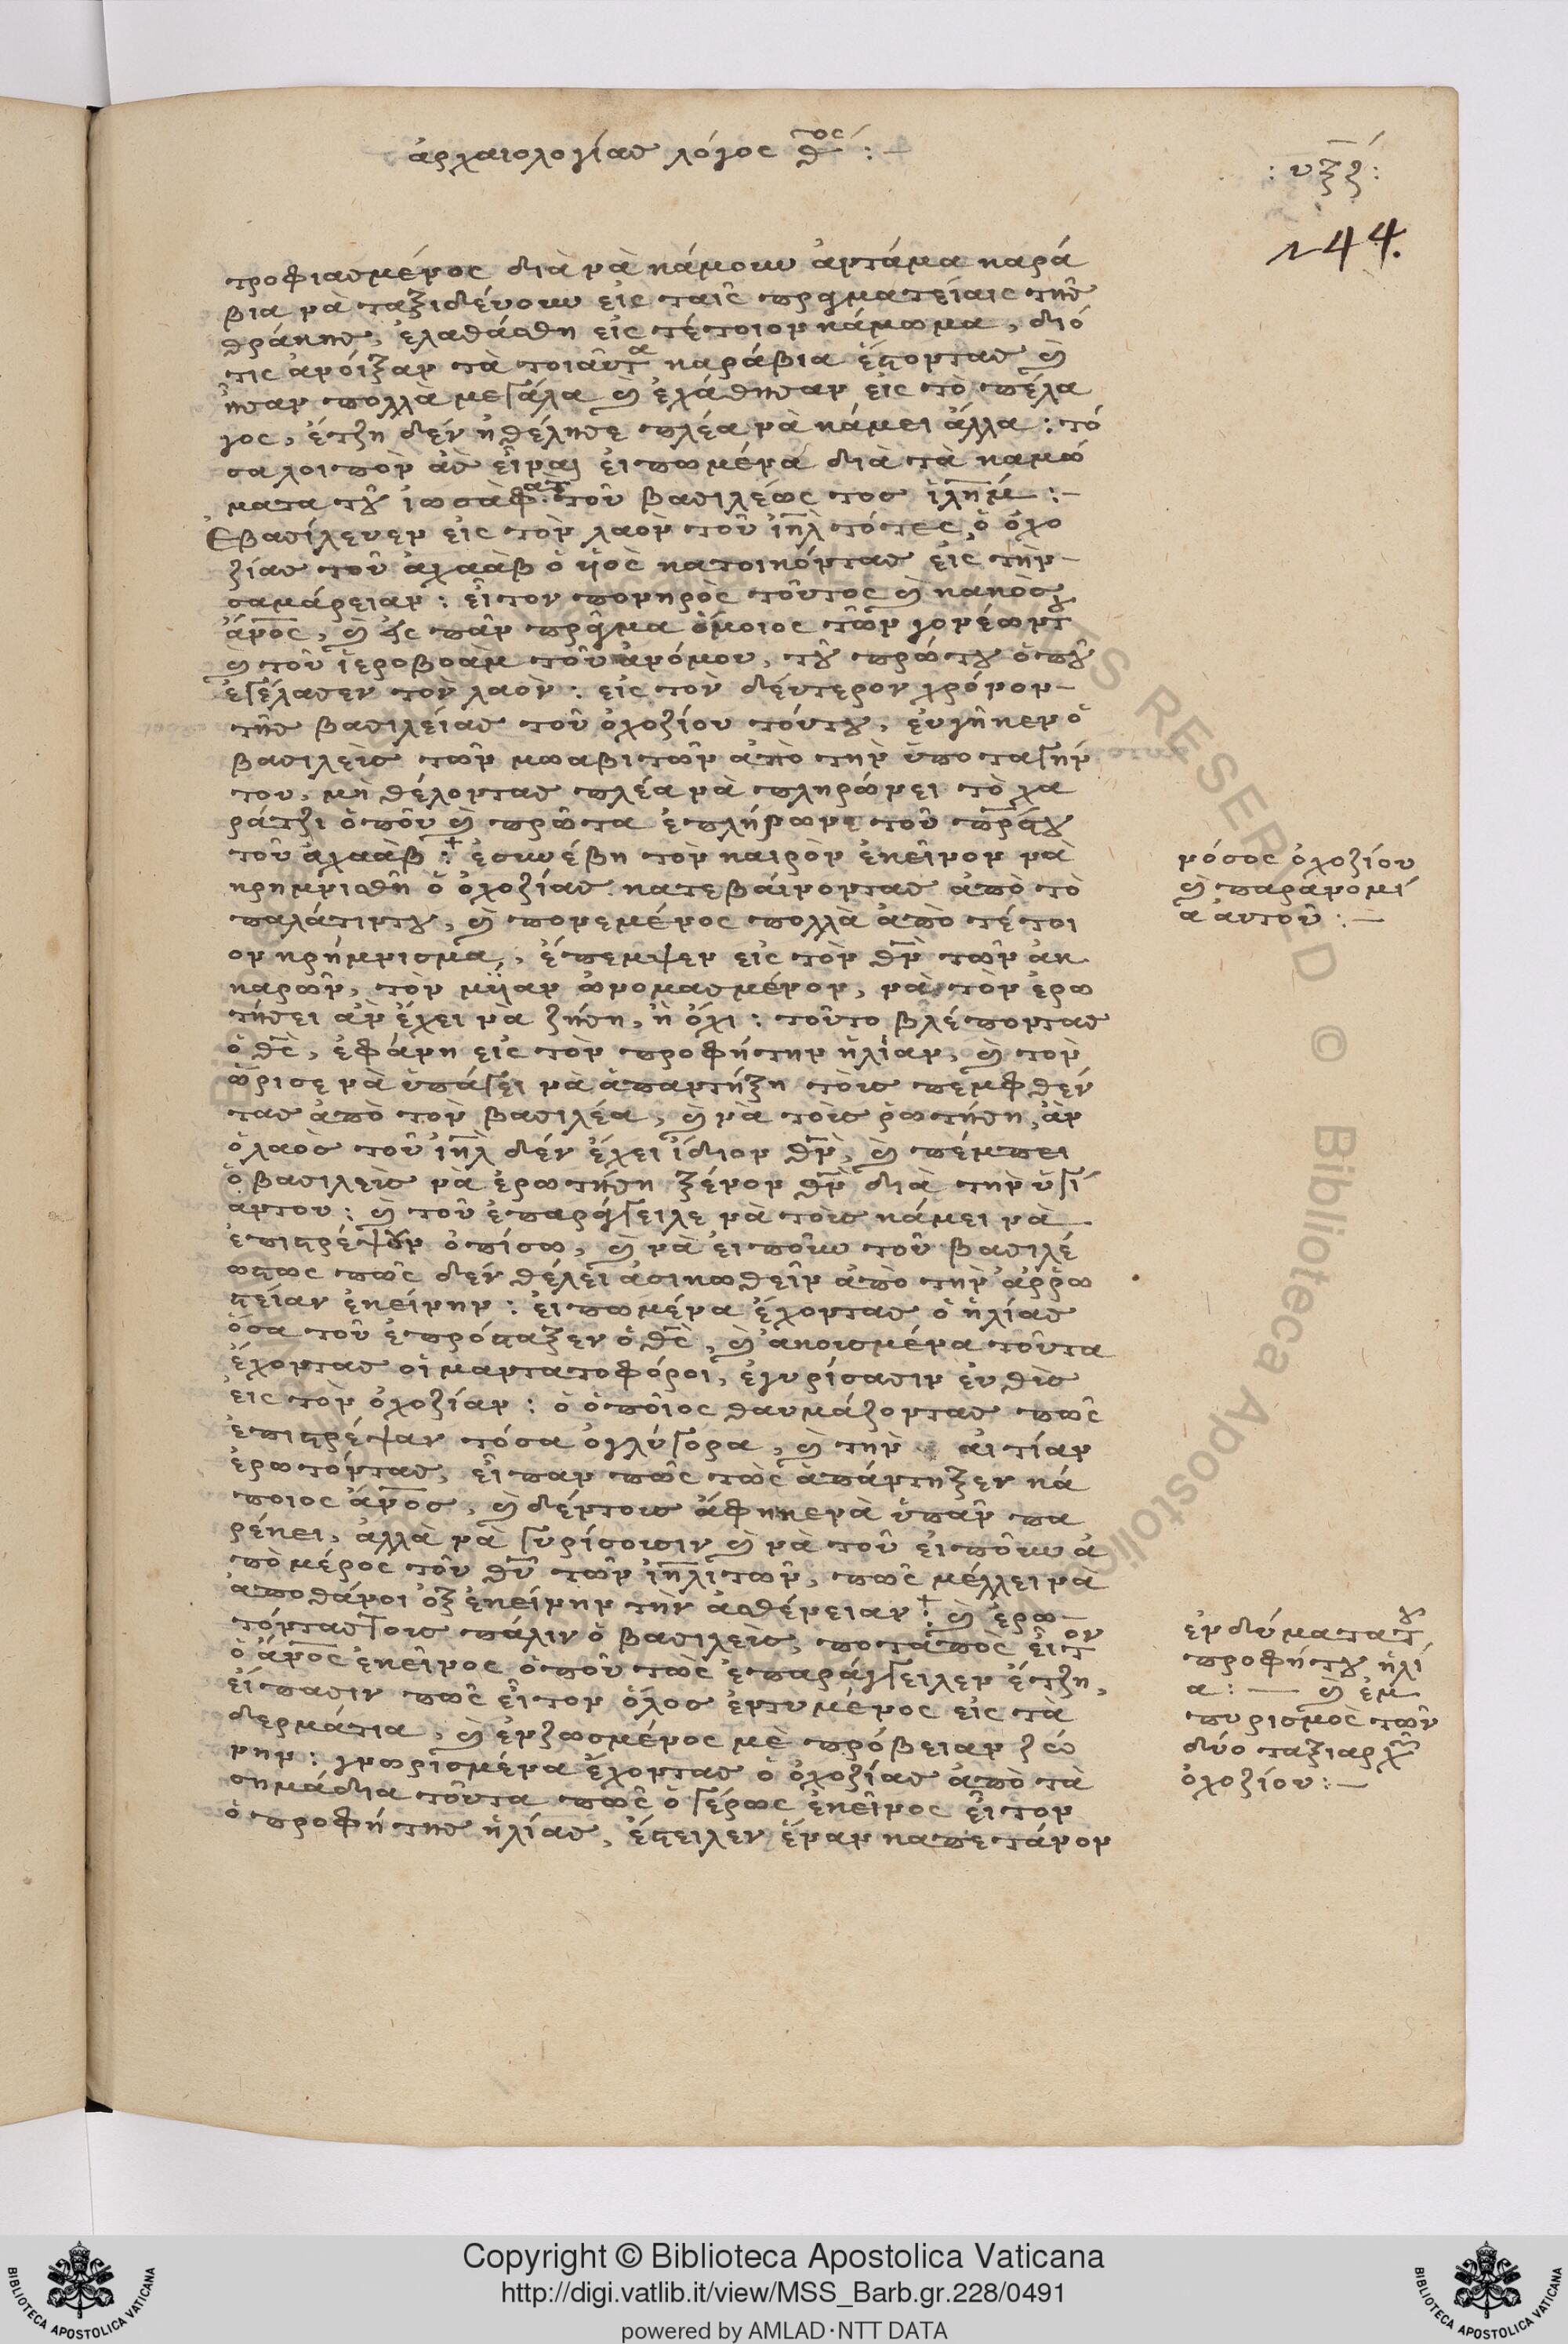 ἀρχαιολογίας λόγος θ^ος :—
: υξζ :
244.
τροφιασμένος διὰ νὰ κάμουν ἀντάμα καρά
βια νὰ ταξιδεύουν εἰς ταῖς πραγματείαις τῆς
θράκης, ἐλαθάσθη εἰς τέτοιον κάμωμα, διό
τις ἀνοίξαν τὰ τοιαῦτα καράβια ἔστοντας καὶ
ἦσαν πολλὰ μεγάλα καὶ ἐχάθησαν εἰς τὸ πέλα
γος, ἔτζη δέν ἠθέλησε πλέα νὰ κάμει ἄλλα : τό
σα λοιπὸν ἂς εἶναι εἰπωμένα διὰ τὰ καμώ
ματα τοῦ ἰωσαφὰτ τοῦ βασιλέως τοσ ἰλημ :—
Ἐβασίλευεν εἰς τὸν λαὸν τοῦ ἰηλ τότες ὁ ὀχο
ζίας τοῦ ἀχαὰβ ὁ ὑὸς κατοικόντας εἰς τὴν
σαμάρειαν : εἶτον πονηρὸς τοῦτος καὶ κακὸς
ἄνος, καὶ εἰς πᾶν πρᾶγμα ὅμοιος τῶν γονέων του
καὶ τοῦ ἱεροβοὰμ τοῦ ἀνόμου, τοῦ πρώτου ὁποῦ
ἐγέλασεν τὸν λαὸν : εἰς τὸν δεύτερον χρόνον
τῆς βασιλείας τοῦ ὀχοζίου τούτου, ἐυγῆκεν ὁ
βασιλεὺς τῶν μωαβιτῶν ἀπὸ τὴν ὑποταγήν
του, μὴ θέλοντας πλέα νὰ πληρώνει τὸ χα
ράτζι ὁποῦ καὶ πρῶτα ἐπλήρωνε τοῦ πρς του
τοῦ ἀχαὰβ :+ ἐσυνέβη τὸν καιρὸν ἐκεῖνον νὰ
κρημνισθῆ ὁ ὀχοζίας κατεβαίνοντας ἀπὸ τὸ
παλάτιντου, καὶ πονεμένος πολλὰ ἀπὸ τέτοι
ον κρήμνισμα, ἔπεμψεν εἰς τὸν θν τῶν ἀκ
καρῶν, τὸν μυῖαν ὠνομασμένον, νὰ τὸν ἐρω
τήσει ἀν ἔχει νὰ ζήση, ἢ ὄχι : τοῦτο βλέποντας
ὁ θς, ἐφάνη εἰς τὸν προφήτην ἠλίαν, καὶ τὸν
ὥρισε νὰ ὑπάγει νὰ ἀπαντήξη τοὺς πεμφθέν
τας ἀπὸ τὸν βασιλέα, καὶ νὰ τοὺς ῥωτήση, ἀν
ὁ λαὸς τοῦ ἰηλ δέν ἔχει ἴδιον θν, καὶ πέμπει
ὁ βασιλεὺς νὰ ἐρωτήση ξένον θν διὰ τὴν ὑγί
αντου : καὶ τοῦ ἐπαράγγειλε νὰ τοὺς κάμει νὰ
ἐπιστρέψουν ὀπίσω, καὶ νὰ εἰποῦν τοῦ βασιλέ
ωστως πῶς δέν θέλει ἀσικωθεῖν ἀπὸ τὴν ἀῤῥω
στείαν ἐκείνην : εἰπωμένα ἔχοντας ὁ ἠλίας
ὅσα τοῦ ἐπρόσταξεν ὁ θς, καὶ ἀκουσμένα τοῦτα
ἔχοντας οἱ μαντατοφόροι, ἐγυρίσασιν εὐθὺς
εἰς τὸν ὀχοζίαν : ὁ ὁποῖος θαυμάζοντας πῶς
ἐπιστρέψαν τόσα ὀγλύγορα, καὶ τὴν αἰτίαν
ἐρωτόντας, εἶπαν πῶς τὼς ἀπάντηξεν κά
ποιος ἄνος, καὶ δέντους ἄφηκενὰ ὑπᾶν πα
ρέκει, ἀλλὰ νὰ γυρίσουσιν καὶ νὰ τοῦ εἰποῦν ἀ
πὸ μέρος τοῦ θυ τῶν ἰηλιτῶν, πῶς μέλλει νὰ
ἀποθάνοι ὀξ ἐκείνην τὴν ἀσθένειαν :+ καὶ ἐρω
τόντας τους πάλιν ὁ βασιλεὺς, ποταπὸς εἶτον
ὁ ἄνος ἐκεῖνος ὁποῦ τὼς ἐπαράγγειλεν ἔτζη,
εἴπασιν πῶς εἶτον ὅλος ἐντυμένος εἰς τὰ
δερμάτια, καὶ ἐνζωσμένος μὲ πρόβειαν ζώ
νην : γνωρισμένα ἔχοντας ὁ ὀχοζίας ἀπὸ τὰ
σημάδια τοῦτα πῶς ὁ γέρως ἐκεῖνος εἶτον
ὁ προφήτης ἠλίας, ἔστειλεν ἕναν καπετάνον
νόσος ὀχοζίου
καὶ παρανομί
α αυτοῦ :—
ἐνδύματα του
προφήτου ἠλί
α :— καὶ ἐμ
πυρισμὸς τῶν
δύο ταξιαρχῶν
ὀχοζίου :—
Copyright © Biblioteca Apostolica Vaticana
http://digi.vatlib.it/view/MSS_Barb.gr.228/0491
powered by AMLAD·NTT DATA
BIBLIOTECA APOSTOLICA VATICANA
BIBLIOTECA APOSTOLICA VATICANA